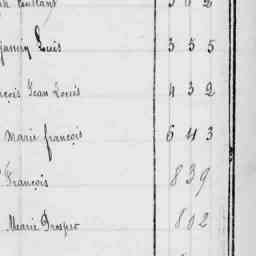 Constant 3 6 2
jamin Louis 3 5 5
nçois Jean Louis 4 3 2
Marie françois 6 4 3
François 8 3 9
Marie Prosper 8 0 2